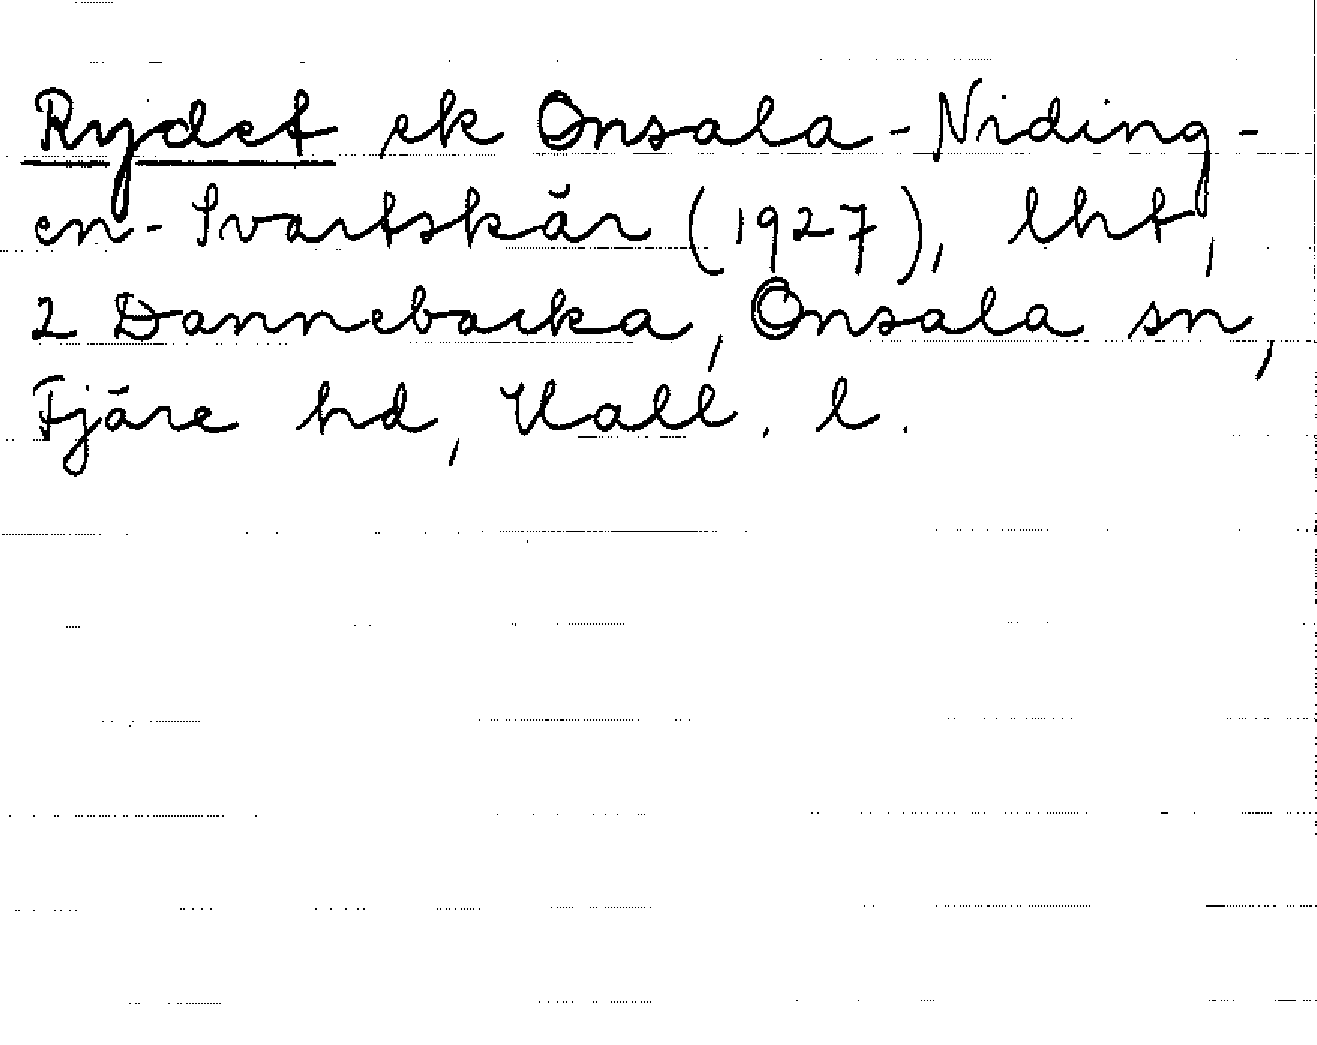 Rydet ek Onsala-Niding-
en-Svartskär (1927), lht,
2 Dannebacka, Onsala sn,
Fjäre hd, Hall. l.